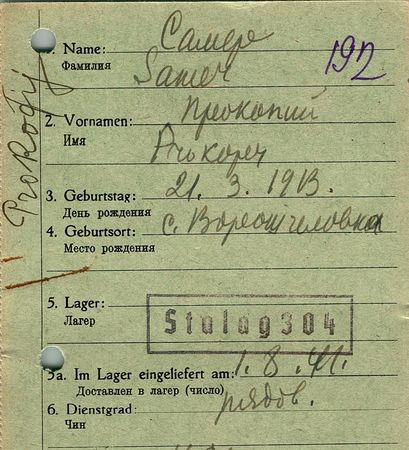 1. Name:
Фамилия
192
2. Vornamen: Прокопий
Имя
Prokofij
3. Geburtstag: 21. 3. 1913.
День рождения
4. Geburtsort: с.
Место рождения
5. Lager: Stalag 304
Лагер
5a. Im Lager eingeliefert am: 1. 8. 41.
Доставлен в лагер (число)
6. Dienstgrad: рядов.
Чин